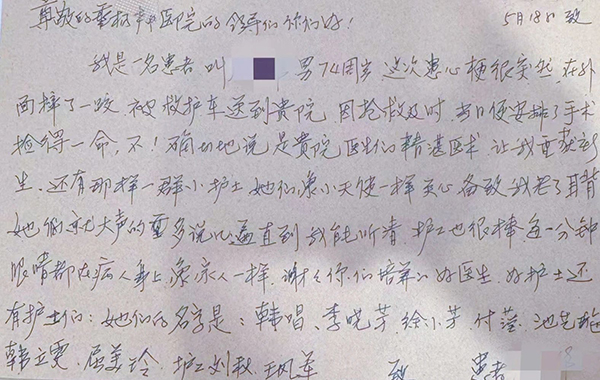 尊敬的重极声医院的领导们你们好！ 5月18日 致
我是一名患者 叫 男74周岁 这次患心梗很突然 在外
面摔了一跤 被救护车送到贵院 因抢救及时 当日便安排了手术
捡得一命，不！确切地说 是贵院医生们精湛医术 让我重获新
生、还有那样一群小护士 她们象小天使一样关心备致 我老了耳背
她们就大声的重多说几遍直到我能听清 护工也很棒 每一分钟
眼睛都在病人身上 象家人一样 谢谢你们 好医生 好护士 还
有护士们：她们的名字是：韩唱、李晓芳 徐小芳 付莲
韩立雯、屈美玲、护工刘秋
致 患者